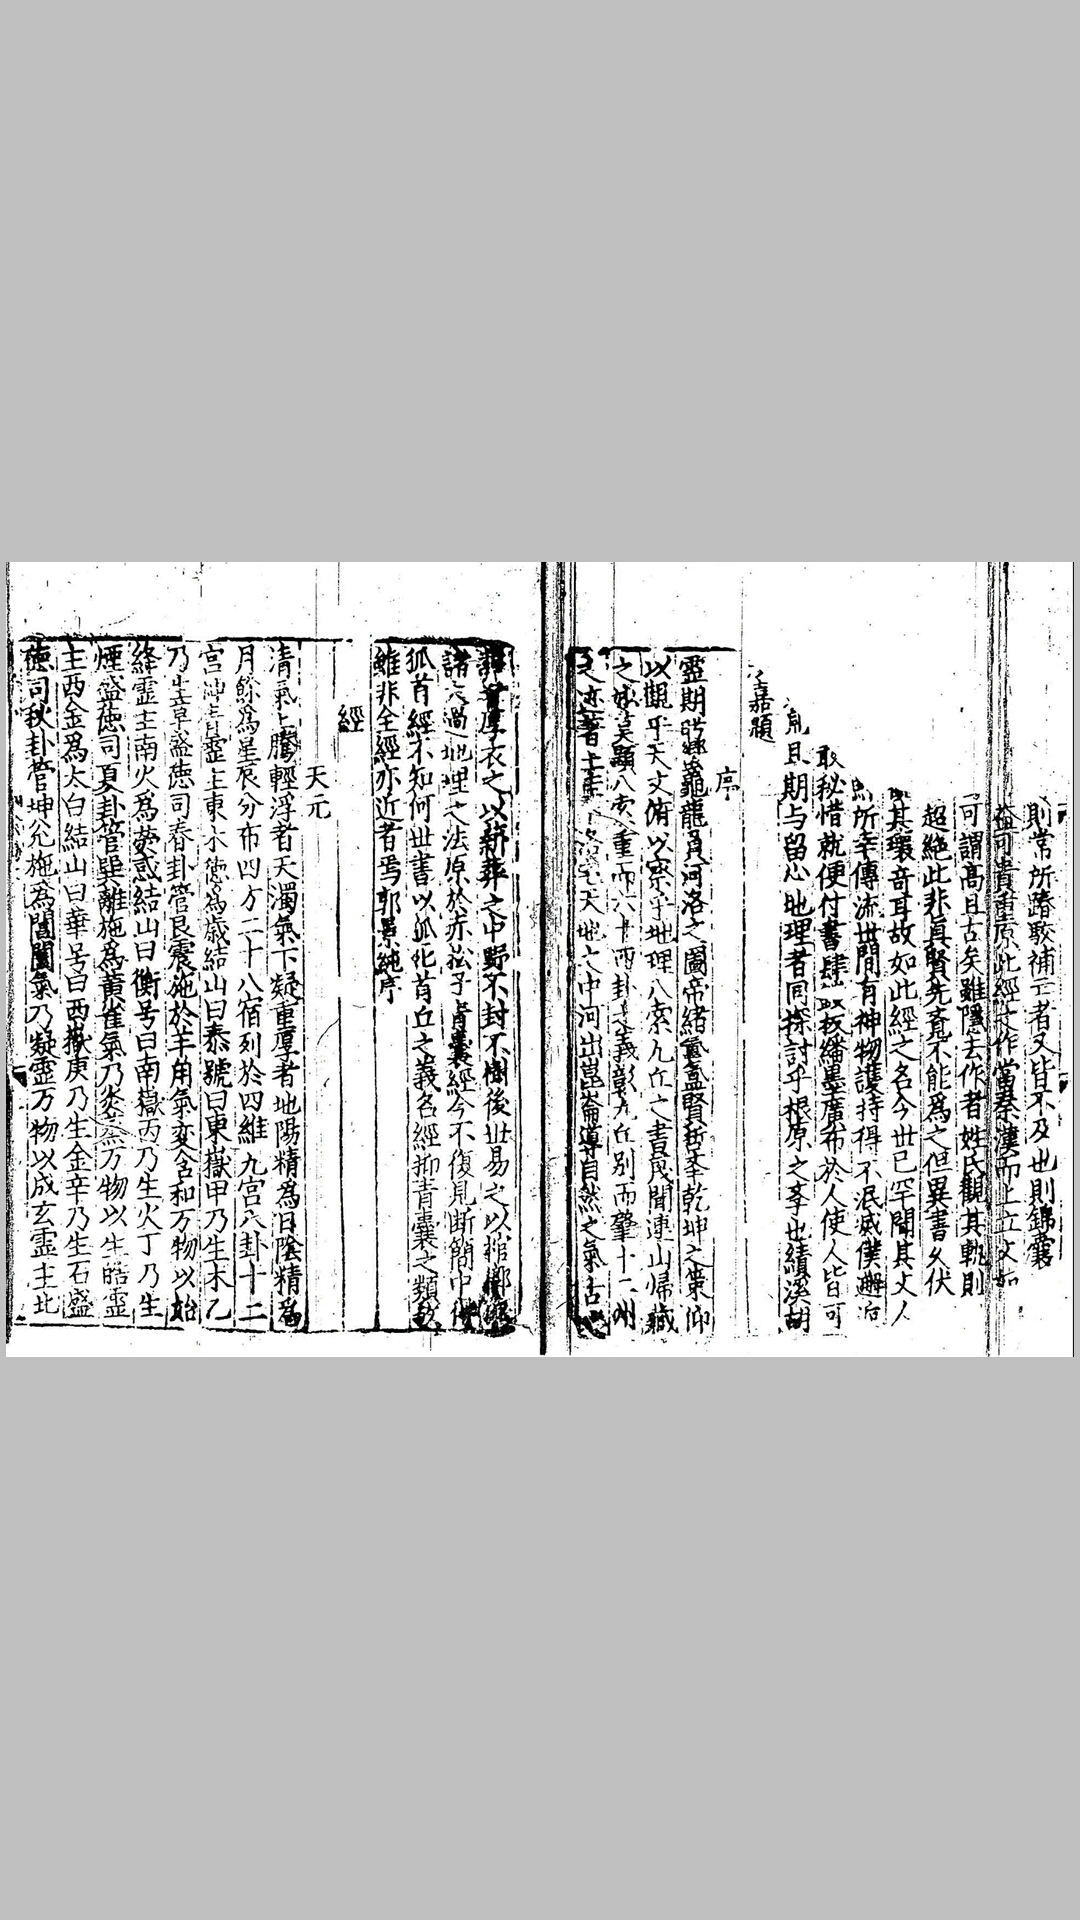 則常所蹲駁補云者又皆不及也則錦囊
益可貴重原此經之作當秦漢而上立文如
可謂高且古矣雖隱去作者姓氏觀其軌則
超絶此非真賢先哲不能為之但異書久伏
其環奇耳故如此經之名今世已罕聞其文人
所幸傳流世間有神物護持得不泯滅僕
敢秘惜就便付書肆板繙墨廣布於人使人皆可
見且期与留心地理者同探討乎根原之學也績溪胡
嘉題
序
靈期 龜龍負河洛之圖帝緒 賢哲 乾坤之策仰
以觀乎天文俯以察乎地理八索九丘之書 聞連山歸藏
之 顯八索 重而六十四卦之義彰九丘別而肇十二州
之迹著 洛 天地之中河出崑崙導自然之氣古
葬者厚衣之以薪葬之中野不封不樹後世易之以棺槨
諸大過地理之法原於赤松子青囊經今不復見斷簡中得
狐首經不知何世書以狐化首丘之義名經抑青囊之類歟
雖非全經亦近者焉郭景純序
經
天元
清氣上騰輕浮者天濁氣下凝重厚者地陽精為日陰精為
月餘為星辰分布四方二十八宿列於四維九宮八卦十二
宮神青靈主東木德為歲結山曰泰號曰東嶽甲乃生木乙
乃生草盛德司春卦管艮震施於羊角氣变含和万物以始
絳靈主南火為熒惑結山曰衡号曰南嶽丙乃生火丁乃生
煙盛德司夏卦管巽離施為薰 氣乃炎蒸万物以生皓靈
主西金為太白結山曰華号曰西嶽庚乃生金辛乃生石盛
德司秋卦管坤兊施為閶闔氣乃凝霊万物以成玄靈主北